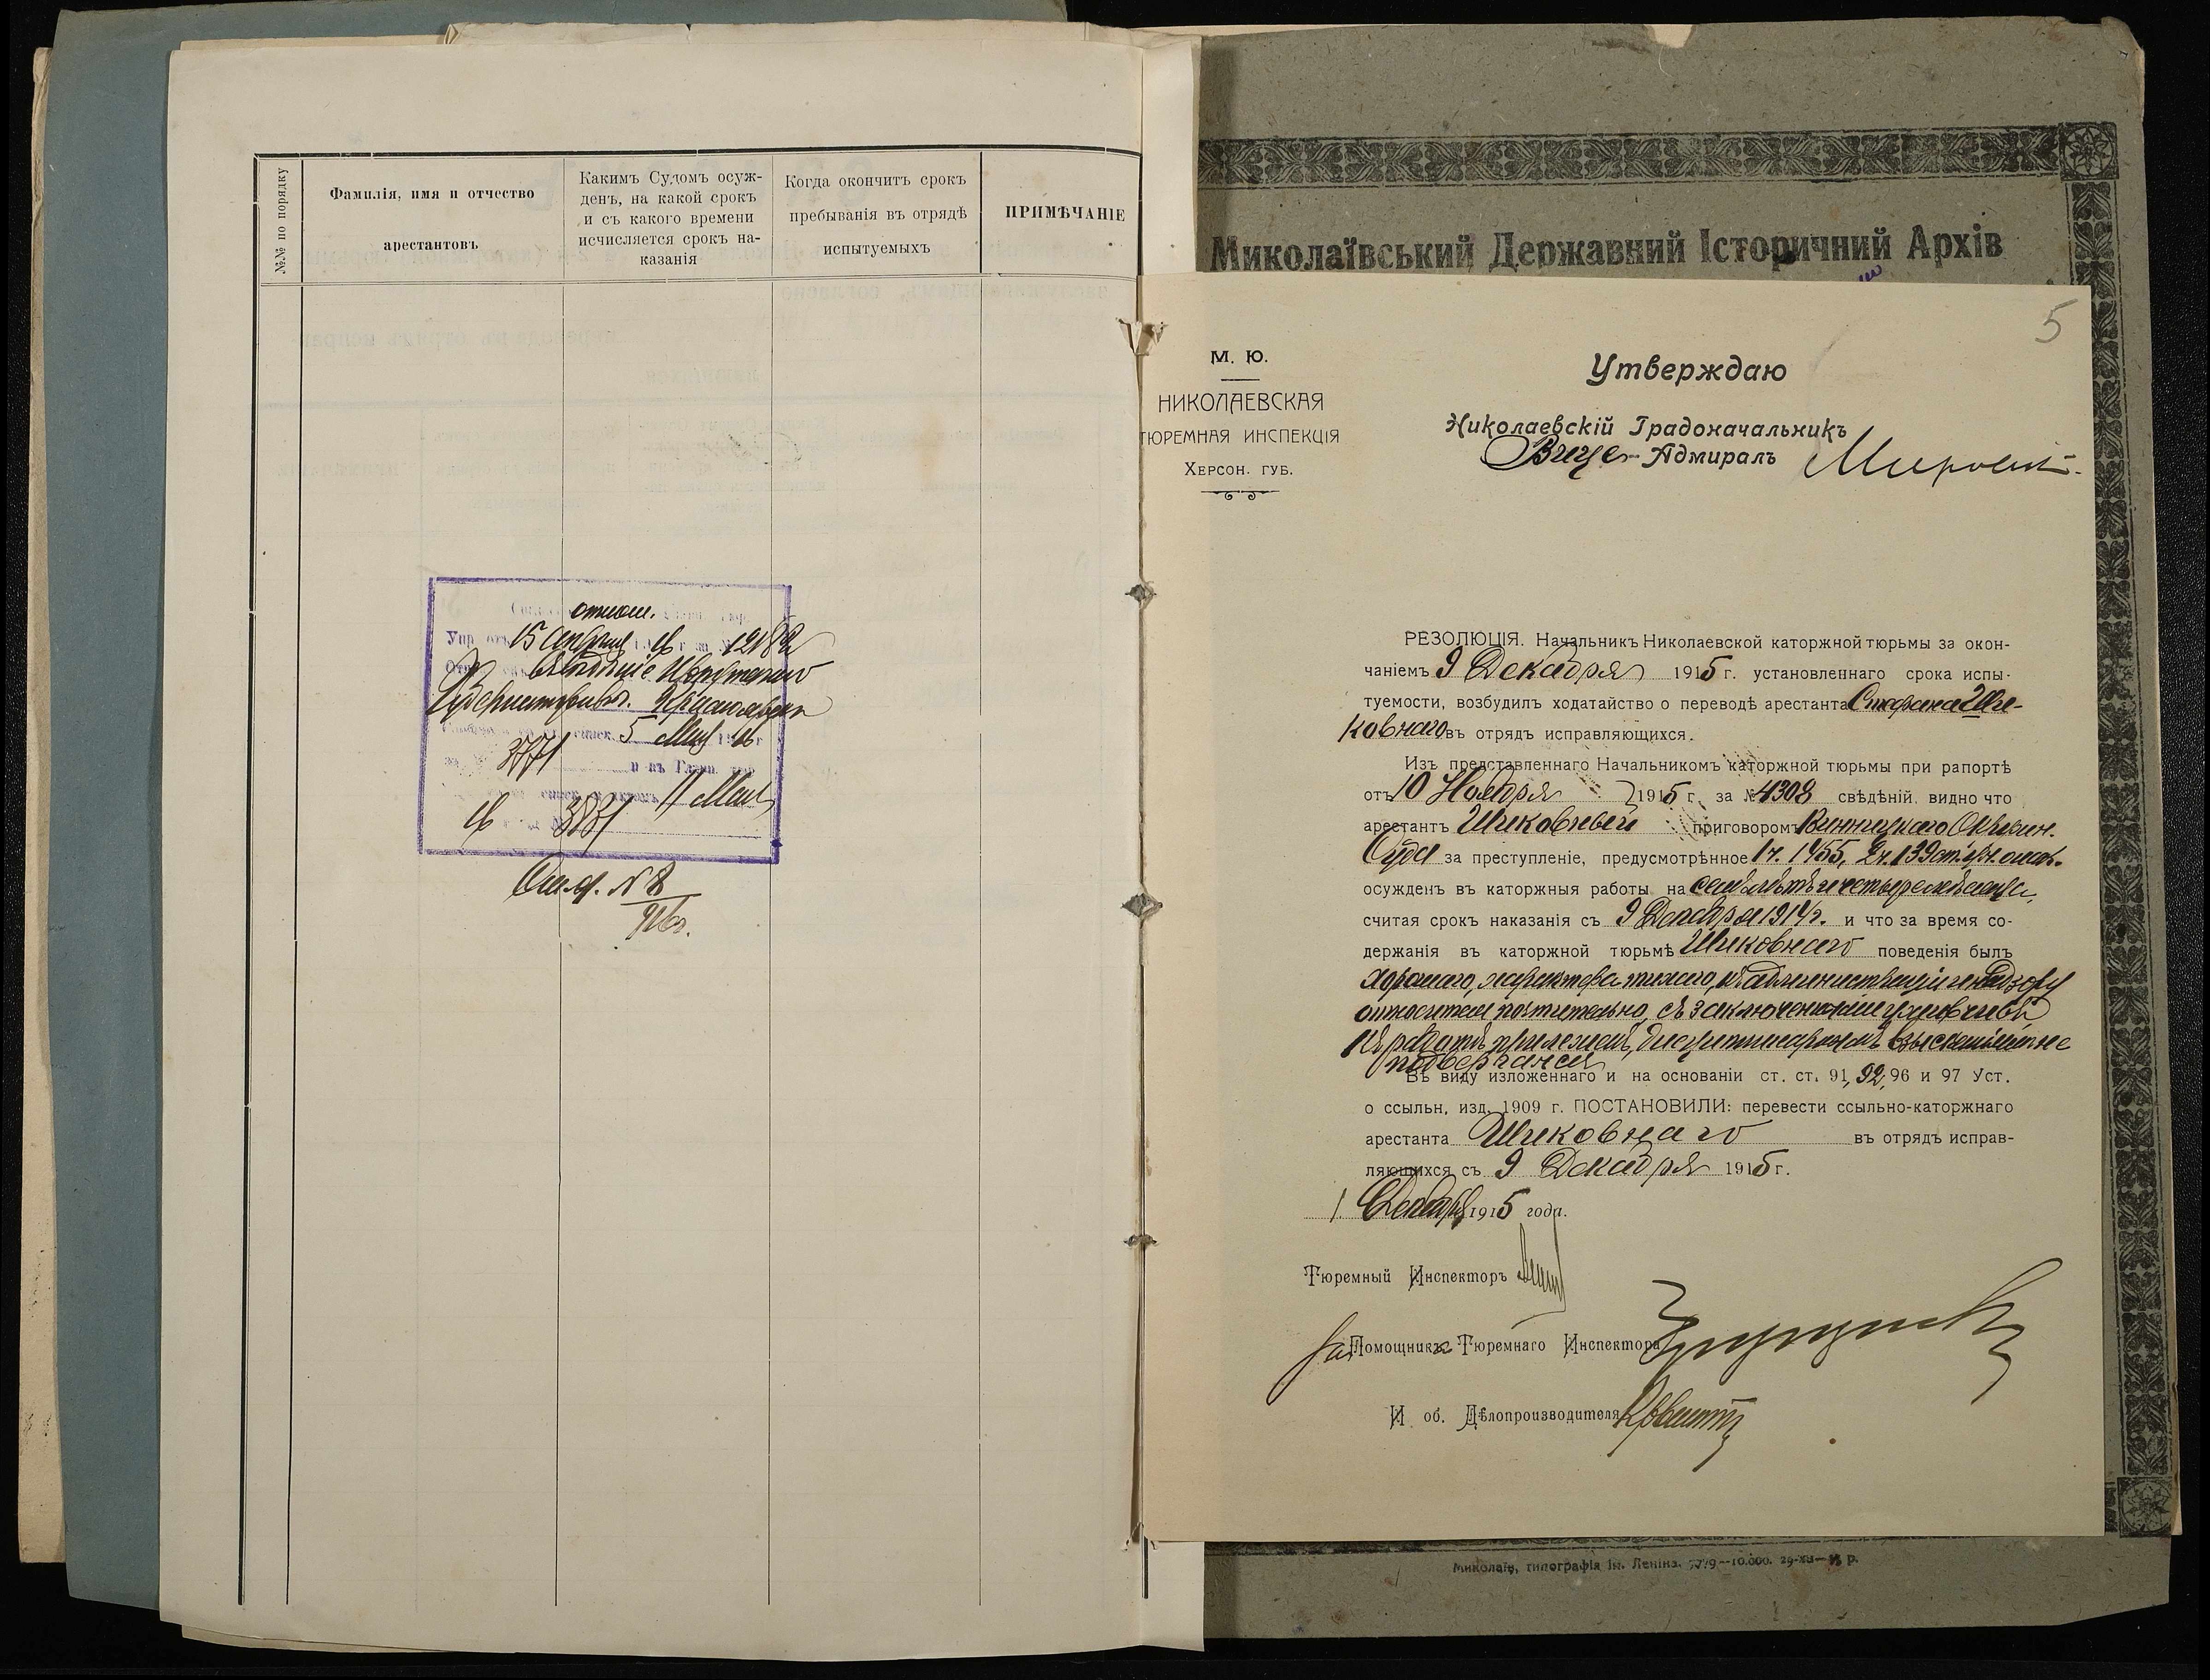 №№ по порядку
Фамилія, имя и отчество
арестантовъ
Какимъ Судомъ осуж-
денъ, на какой срокъ
и съ какого времени
исчисляется срокъ на-
казанія
Когда окончитъ срокъ
пребыванія въ отрядѣ
испытуемыхъ
ПРИМѢЧАНІЕ
отнош.
15 Апрѣля 16 г за 12182
5 Мая 16 г
3771
и въ Глав. тюр.
11 Мая
16 3831
Опис. № 8
916г.
Миколаївський Державний Історичний Архів
5
М. Ю.
НИКОЛАЕВСКАЯ
ТЮРЕМНАЯ ИНСПЕКЦІЯ
Херсон. губ.
Утверждаю
Николаевскій Градоначальникъ
Вице-Адмиралъ
РЕЗОЛЮЦІЯ. Начальникъ Николаевской каторжной тюрьмы за окон-
чаніемъ 9 Декабря 1915 г. установленнаго срока испы-
туемости, возбудилъ ходатайство о переводѣ арестанта Стефана Шче-
ковнаго въ отрядъ исправляющихся.
Изъ представленнаго Начальникомъ каторжной тюрьмы при рапортѣ
отъ 10 Ноября 1915 г. за № 4308 свѣдѣній видно что
арестантъ приговоромъ Винницкаго Окружн.
Суда за преступленіе, предусмотрѣнное 1 ч. 1455, 2 ч. 139 ст. улож. о нак.
осужденъ въ каторжныя работы на семь лѣтъ и четыре мѣсяца,
считая срокъ наказанія съ 9 Декабря 1914 г. и что за время со-
держанія въ каторжной тюрьмѣ поведенія былъ
хорошаго, характера тихаго, къ администраціи и надзору
относится почтительно, съ заключенными уживчивъ
къ работѣ прилеженъ, дисциплинарнымъ взысканіямъ не
подвергался
Въ виду изложеннаго и на основаніи ст. ст. 91, 92, 96 и 97 Уст.
о ссыльн, изд. 1909 г. ПОСТАНОВИЛИ: перевести ссыльно-каторжнаго
арестанта въ отрядъ исправ-
ляющихся съ 9 Декабря 1915 г.
1 Декабря 1915 года.
Тюремный Инспекторъ
За Помощника Тюремнаго Инспектора
И об. Дѣлопроизводителя
Миколаїв, типографія ім. Леніна.